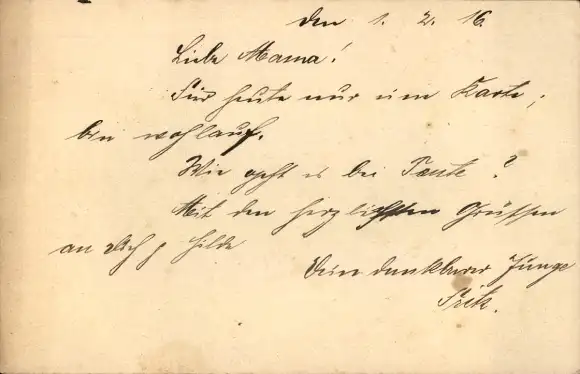 den 1. 2. 16.
Liebe Mama!
Für heute nur eine Karte,
bin wohlauf.
Wie geht es bei Tante?
Mit den herzlichsten Grüssen
an Dich, Hilde
Dein dankbarer Junge
Fritz.